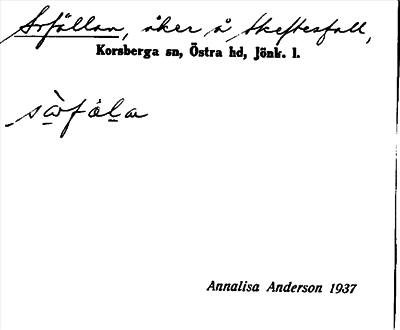 Sorfållan, åker å Skeftesfall,
Korsberga sn, Östra hd, Jönk. l.
sàrfåla
Annalisa Anderson 1937